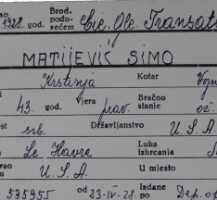 1928. god. Brod. podu- zećem Cie. Gle. Transat
MATIJEVIĆ SIMO
Krstinja Kotar Vojni
43. god. Vjera prav. Bračno stanje
srb. Državljanstvo U.S.A.
Le Havre Luka izkrcanja
U.S.A. U mjesto
535955 od 23-IV-28. Izdane po Dep. o